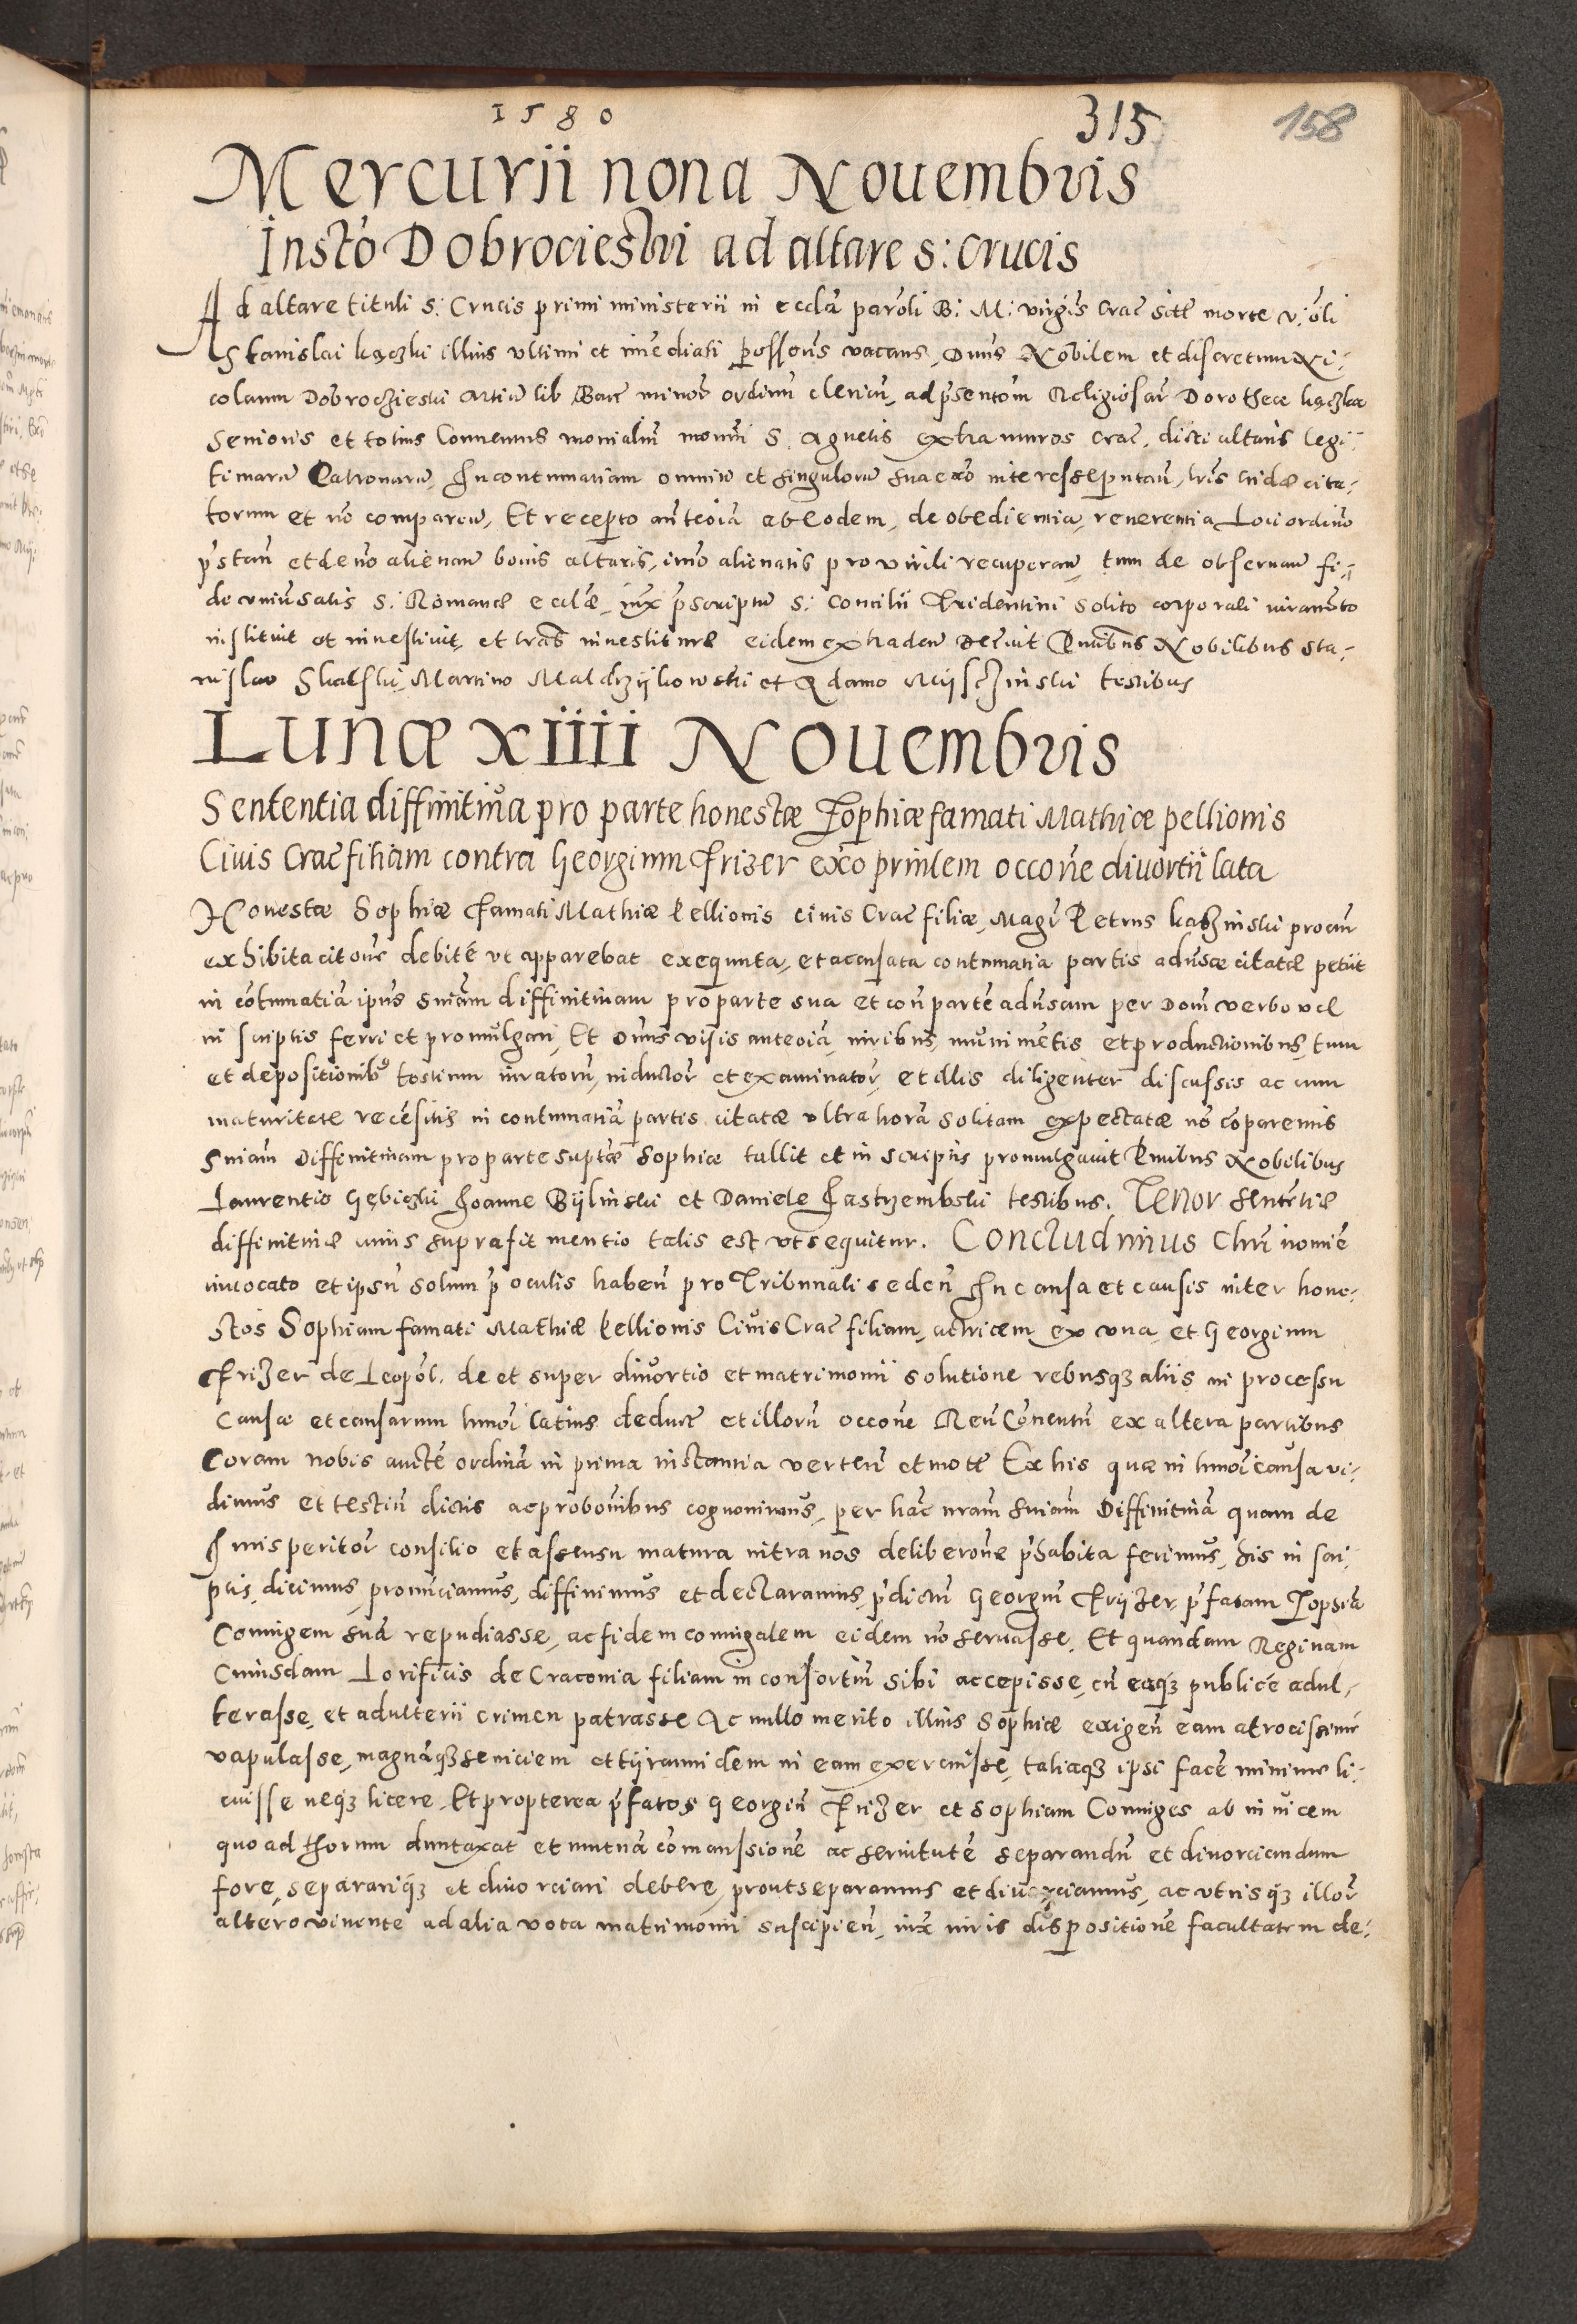 1580
315
158
Mercurii nona Nouembris
Insto Dobrociesky ad altare s: crucis
Ad altare tituli S: Crucis primi ministerii in eccla paroli B: M: virgis Crac sitt morte v: oli
Stanislai Kączki illius vltimi et imediati possons vacans, Dnus Nobilem et discretum Ni:
colaum Dobroczieski Artiu lib Bacc minor ordinu clericu, ad psentom Religiosar Dorotheæ Kączka
Senioris et totius Conuentus monialiu monrii S. Agnetis extra muros Crac, dicti altaris legi:
timaru Patronaru, In contumatiam omniu et singuloru sua exo interesse putan, lris cita:
torum et no comparcu, Et recepto anteoia ab eodem, de obedientia, reuerentia Loci ordino
pstan et de no alienan bonis altaris, imo alienatis pro virili recuperan, tum de obseruan fi:
de vniusalis S: Romanæ ecclæ, iux pscriptu S: Concilii Tridentini solito corporali iuramto
instituit et inuestiuit, et lras inuestituræ eidem extraden decreuit Pntibus Nobilibus Sta:
nislao Skalski, Martino Maldrzijkowski et Adamo Mijsczinski testibus
Lunæ xiiii Nouembris
Sententia diffinitiua pro parte honestæ Zophiæ famati Mathiæ pellionis
Ciuis Crac filiam contra Georgium Frizer exo principlem occone diuortii lata
Honestæ Sophiæ famati Mathiæ Pellionis ciuis Crac filiæ, Magr Petrus Kaczinski procur
exhibita citone debité vt apparebat exequuta, et accusata contumatia partis aduersæ citatæ petiit
in cotumatia ipius sniam diffinitiuam pro parte sua et con parte aduersam per Dom verbo vel
in scriptis ferri et promulgari, Et Dnus visis anteoia, iuribus, munimetis et productionibus, tum
et depositionibus testium iuratoru, inductor et examinator, et illis diligenter discussis ac cum
maturitate recesitis in contumatia partis citatæ vltra hora solitam expectatæ no coparentis
Sniam Diffinitiuam pro parte suptæ Sophiæ tullit et in scriptis promulgauit Pntibus Nobilibus
Laurentio Gębiczki Joanne Bijlinski et Daniele Jastrzembski testibus. Tenor sententiæ
diffinitiuæ cuius supra fit mentio talis est vt sequitur. Concludimus Chri nomie
inuocato et ipsu solum p oculis haben pro Tribunali seden In causa et causis inter hone:
stos Sophiam famati Mathiæ Pellionis Ciuis Crac filiam, actricem, ex vna, et Georgium
Frizer de Leopol. de et super diuortio et matrimonii solutione rebusqz aliis in processu
causæ et causarum hmoi latius deduct et illoru occone Reu Conuentu ex altera partibus
Coram nobis aucte ordina in prima instantia verten et mott Ex his quæ in hmoi causa vi:
dimus et testiu dictis ac probonibus cognouimus, per hac nram sniam Diffinitiua quam de
Iurisperitor consilio et assensu matura intra nos deliberone phabita ferimus, his in scri:
ptis, dicimus, pronuciamus, diffinimus et declaramus, pdictu Georgiu Frijzer pfatam Zophia
Coniugem sua repudiasse, ac fidem coniugalem eidem no seruasse, Et quandam Reginam
cuiusdam Lorificis de Cracouia filiam in consortiu sibi accepisse, cu eaqz publicé adul:
terasse, et adulterii crimen patrasse Ac nullo merito illius Sophiæ exigen eam atrocissime
vapulasse, magnaqz seuiciem et tijrannidem in eam exercuisse, taliaqz ipsi face minime li:
cuisse neqz licere, Et propterea pfatos Georgiu Frizer et Sophiam Coniuges ab inuicem
quo ad thorum duntaxat et mutua comansione ac seruitute separandu et diuorciandum
fore, separariqz et diuorciari debere, prout separamus et diuorciamus, ac vtrisqz illor
altero viuente ad alia vota matrimonii suscipien, iux iuris dispositione facultatem de: